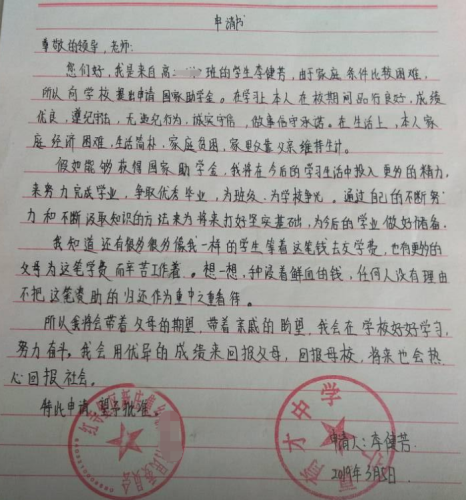 申请书
尊敬的领导,老师:
您们好,我是来自高 班的学生李健芳,由于家庭条件比较困难,
所以向学校提出申请国家助学金。在学习上本人在校期间品行良好,成绩
优良,遵纪守法,无违纪行为,诚实守信,做事信守承诺。在生活上,本人家
庭经济困难,生活简朴,家庭贫困,家里仅靠父亲维持生计。
假如能够获得国家助学金,我将在今后的学习生活中投入更多的精力,
来努力完成学业,争取优秀毕业,为班级、为学校争光。通过自己的不断努
力和不断汲取知识的方法来为将来打好坚实基础,为今后的学业做好储备。
我知道还有很多很多像我一样的学生等着这笔钱去交学费,也有更多的
父母为这笔学费而辛苦工作着。想一想,种浸着鲜血的钱,任何人没有理由
不把这笔资助的归还作为重中之重看待。
所以我将会带着父母的期望,带着亲戚的盼望,我会在学校好好学习,
努力奋斗。我会用优异的成绩来回报父母,回报母校,将来也会热
心回报社会。
特此申请,望予批准。
申请人:李健芳
2019年3月5日.
才中学
育
民委员会